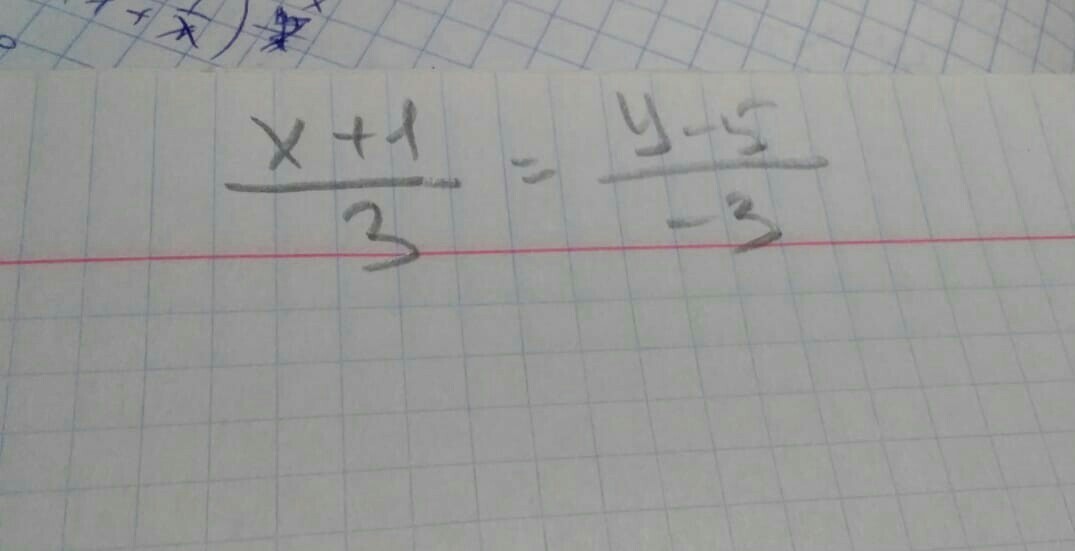 x + 1 / 3 = y - 5 / -3